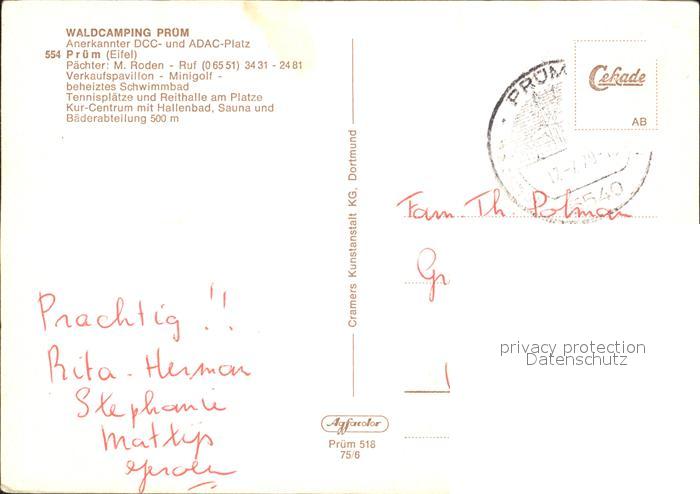 WALDCAMPING PRÜM
Anerkannter DCC- und ADAC-Platz
554 Prüm (Eifel)
Pächter: M. Roden - Ruf (0 65 51) 34 31 - 24 81
Verkaufspavillon - Minigolf -
beheiztes Schwimmbad
Tennisplätze und Reithalle am Platze
Kur-Centrum mit Hallenbad, Sauna und
Bäderabteilung 500 m
Prachtig !!
Rita - Herman
Stephanie
Mattijs
Cramers Kunstanstalt KG, Dortmund
PRÜM
5540
Cekade
AB
Fam. Th. Polman
Gr
privacy protection
Datenschutz
Agfacolor
Prüm 518
75/6